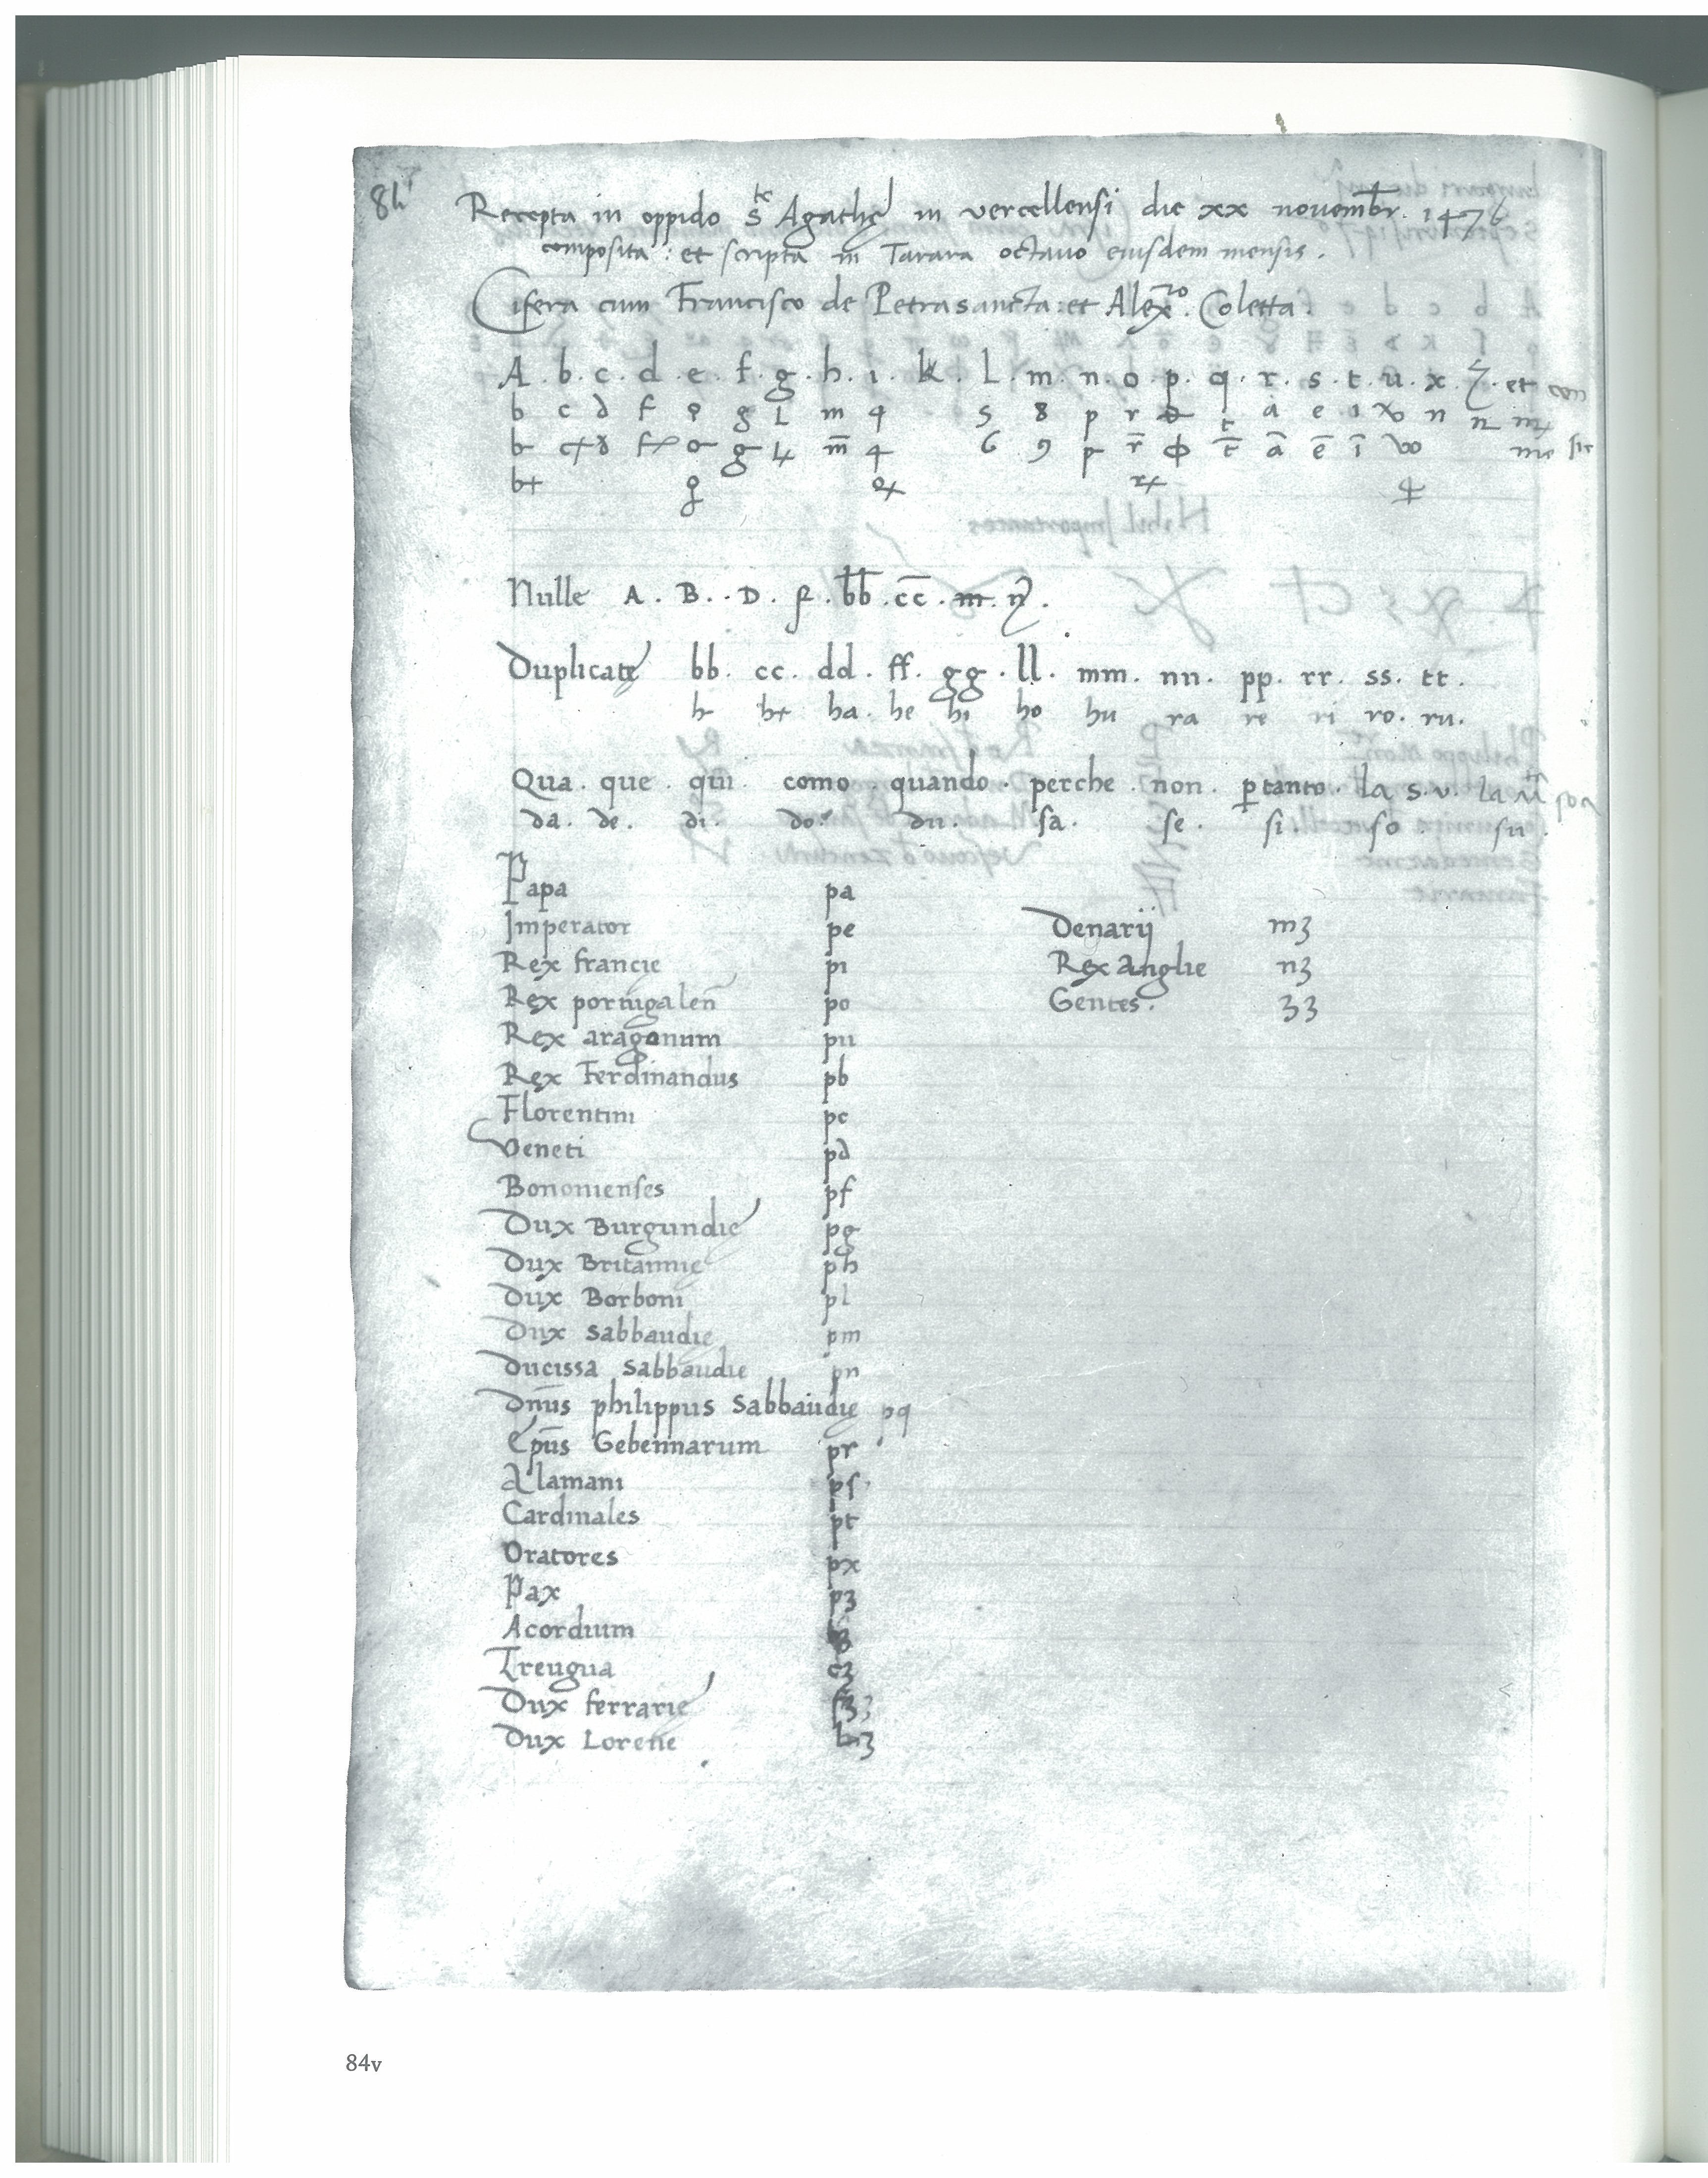 84
Recepta in oppido ste Agathę in vercellensi die xx novembr. 1476
composita: et scripta in Tarara octavo eiusdem mensis.
Cifera cum Francisco de Petrasancta: et Alexro. Coletta.
A . b . c . d . e . f . g . h . i . k . l . m . n . o . p . q . r . s . t . u . x . z . et con
b c d f g L m 4 5 8 p r a e i n
b g m̄ 4 6 9 p r̄ ф t̄ ā ē ī
b+
Nulle A . B . . D . . bb . cc . m .
Duplicatę bb . cc . dd . ff . gg . ll . mm . nn . pp . rr . ss . tt .
ha . he hi ho hu ra re ri ro . ru .
Qua . que . qui . como . quando . perche . non . ptanto . la s . v . la
da . de . di . do . du . sa . se . si . so . su .
Papa pa
Imperator pe Denarij m3
Rex francie pi Rex Anglie n3
Rex portugalen̄ po Gentes . 33
Rex aragonum pu
Rex Ferdinandus pb
Florentini pc
Veneti pd
Bononienses pf
Dux Burgundię pg
Dux Britannię ph
Dux Borboni pl
Dux Sabbaudię pm
Ducissa Sabbaudię pn
Dn̄us philippus Sabbaudię pq
Ep̄us Gebennarum pr
Alamani ps
Cardinales pt
Oratores px
Pax p3
Acordium
Treugua c3
Dux ferrarię f3
Dux Lorene
84v